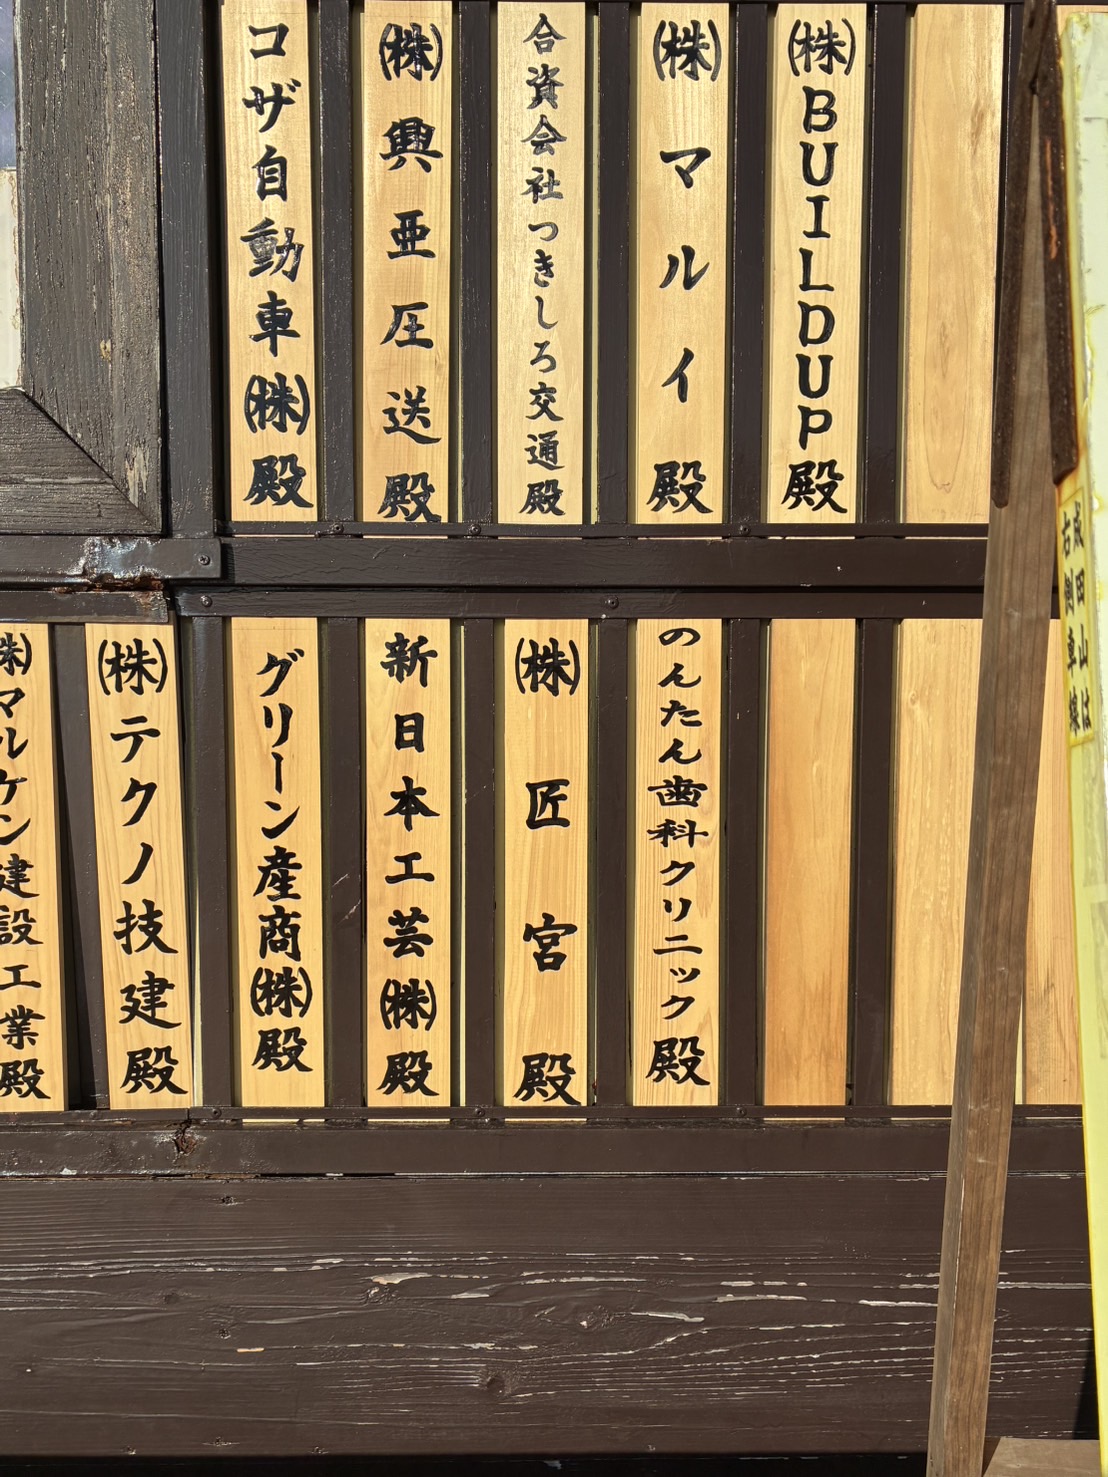 成田山は
右側車線
(株)BUILDUP殿
(株)マルイ殿
合資会社つきしろ交通殿
(株)興亜圧送殿
コザ自動車(株)殿
のんたん歯科クリニック殿
(株)匠宮殿
新日本工芸(株)殿
グリーン産商(株)殿
(株)テクノ技建殿
(株)マルケン建設工業殿